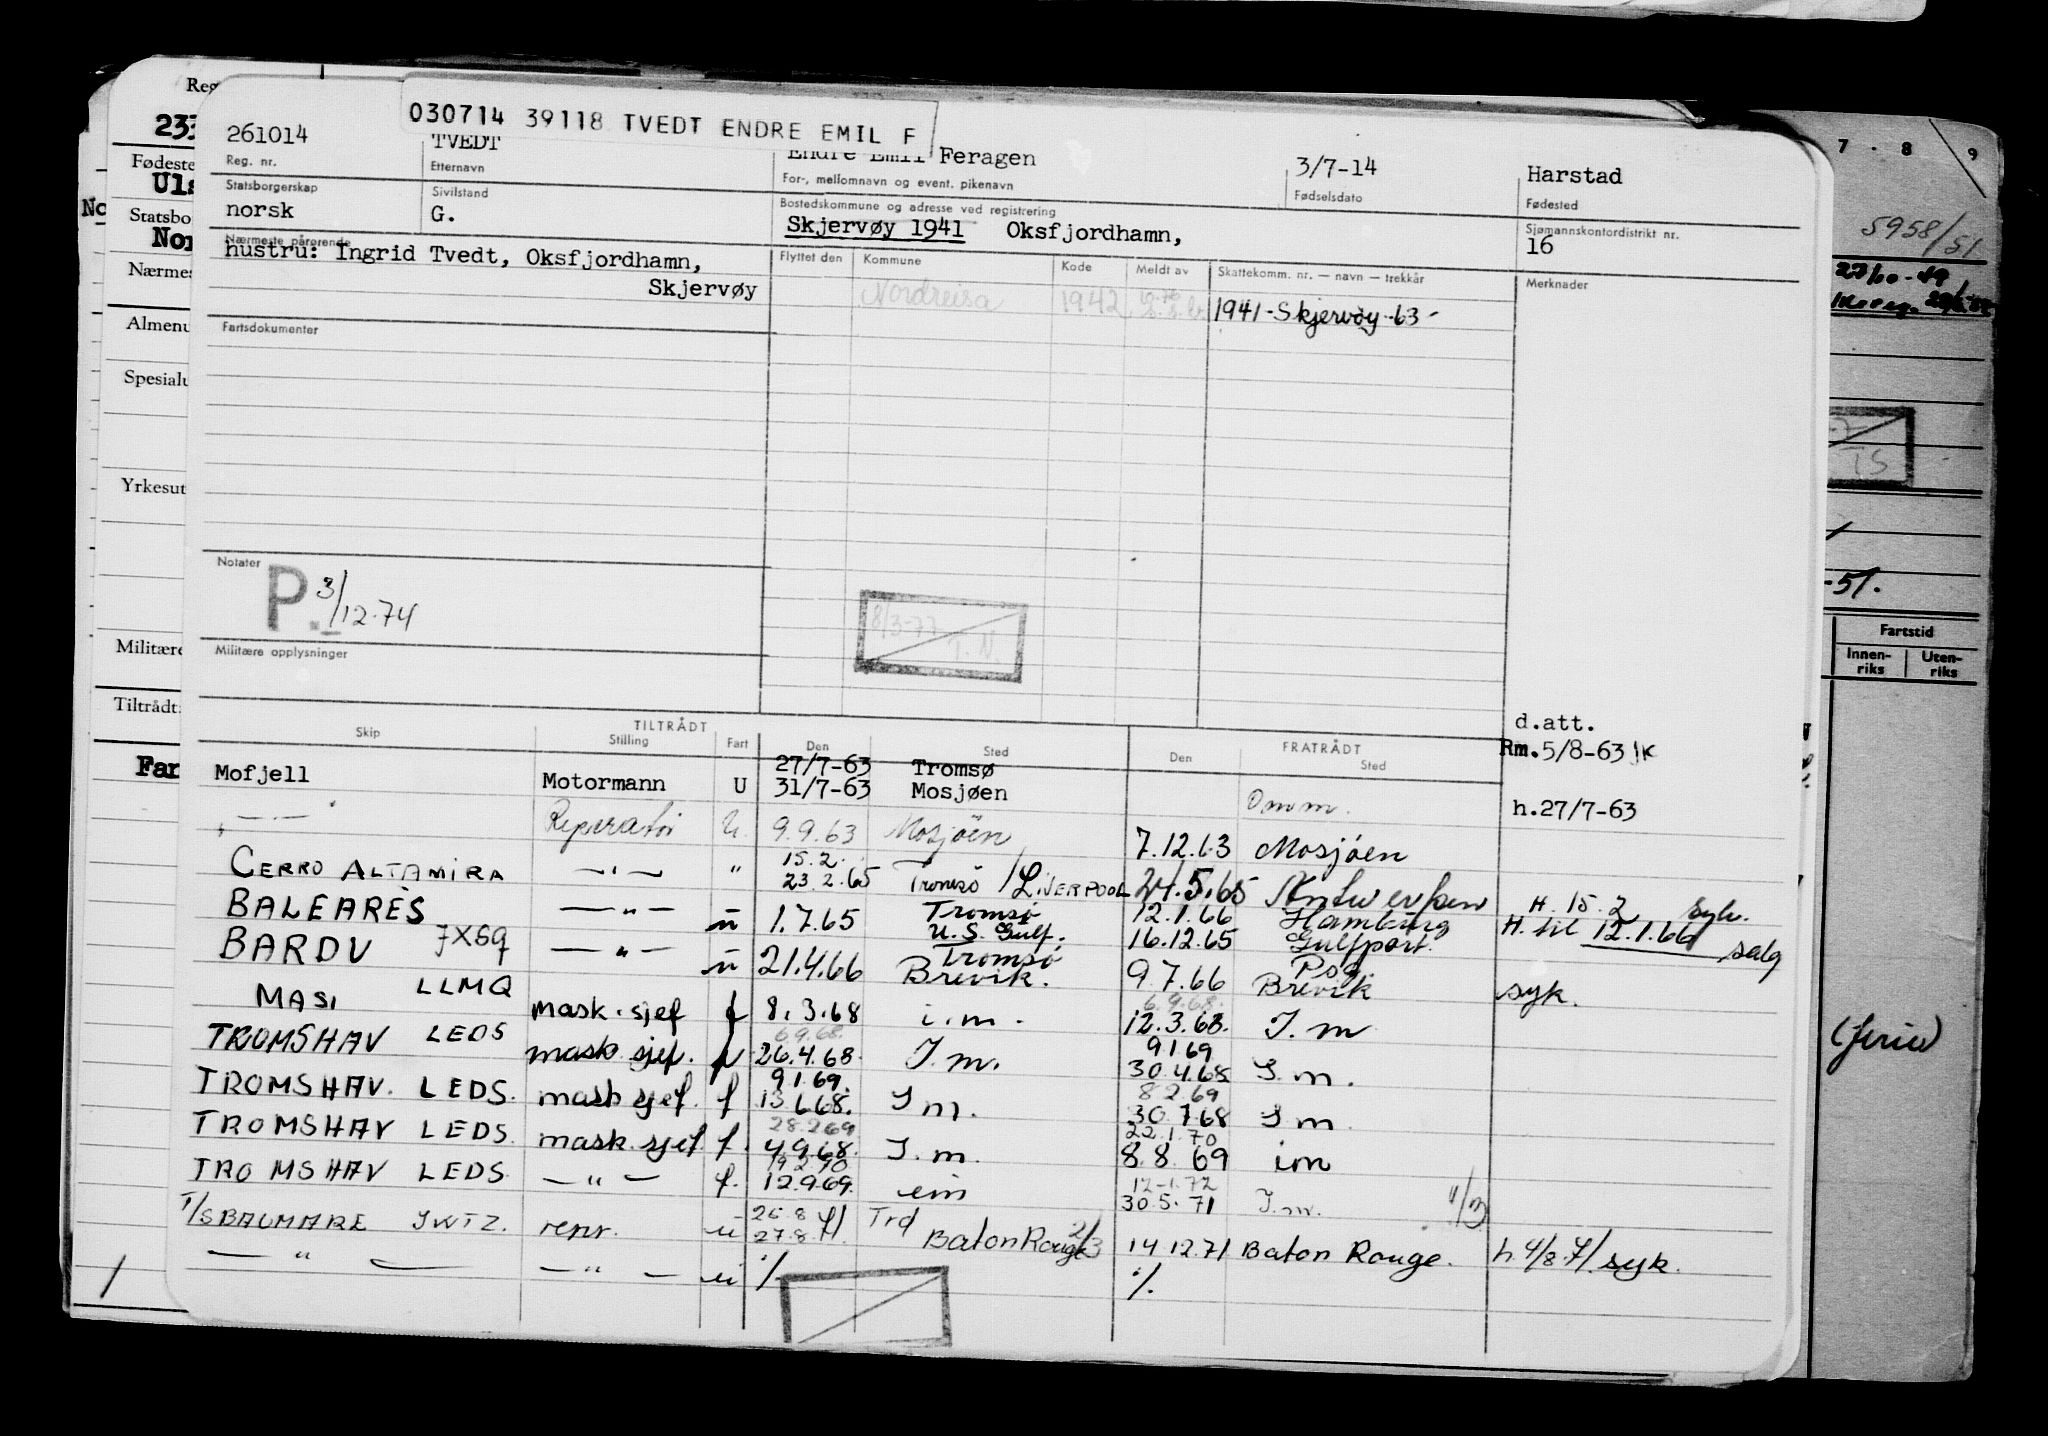 030714 39118 TVEDT ENDRE EMIL F
261014 TVEDT Endre Emil Feragen 3/7-14 Harstad
Reg. nr. Etternavn For-, mellomnavn og event. pikenavn Fødselsdato Fødested
Statsborgerskap Sivilstand Bostedskommune og adresse ved registrering Sjømannskontordistrikt nr.
norsk G. Skjervøy 1941 Oksfjordhamn, 16
Nærmeste pårørende Flyttet den Kommune Kode Meldt av Skattekomm. nr. — navn — trekkår Merknader
hustru: Ingrid Tvedt, Oksfjordhamn,
Skjervøy
Nordreisa 1942 1941-Skjervøy-63-
Fartsdokumenter
Notater
P. 3/12-74
8/3-77 T.N.
Militære opplysninger
TILTRÅDT FRATRÅDT
Skip Stilling Fart Den Sted Den Sted
d.att.
Rm.5/8-63 JK
Mofjell Motormann U 27/7-63 Tromsø
31/7-63 Mosjøen Omm. h.27/7-63
— " — Reperatør U. 9.9.63 Mosjøen 7.12.63 Mosjøen
CERRO ALTAMIRA — " — " 15.2. 23.2.65 Tromsø / LIVERPOOL 24.5.65 Antwerpen H. 15.2 syk.
BALEARES — " — u 1.7.65 Tromsø U.S. Gulf. 12.1.66 Hamburg 16.12.65 Gulfport. H. til 12.1.66 salg
BARDU JXGQ — " — u 21.4.66 Tromsø Brevik. 9.7.66 Psg. Brevik syk.
MASI LLMQ mask.sjef f 8.3.68 i.m. 12.3.68. I.m
TROMSHAV LEDS mask sjef. f 6.9.68. 26.4.68. I.m. 6.9.68. 9.1.69 30.4.68 I.m.
TROMSHAV. LEDS. mask sjef. f 9.1.69. 13.6.68. I m. 8.2.69 30.7.68 I m.
TROMSHAV LEDS. mask. sjef. f. 28.2.69 4.9.68. I.m. 22.1.70 8.8.69 im
TROMSHAV LEDS — " — f. 19.2.70 12.9.69. im 12-1-72 30.5.71 I.m. 1/3
T/S BALMARE JWTZ. repr. u 26.8 27.8.71. Trd Baton Rouge 2/3 14.12.71 Baton Rouge. h.4/8.71. syk.
— " — — " — u ./. ./.
Reg
233
Fødeste
Uls
No
Statsbo
Nor
Nærmes
Almenu
Spesialu
Yrkesut
Militære
Tiltrådt
Far
7 . 8 9
5958/51
-51.
Fartstid
Innen-riks Uten-riks
(ferie)